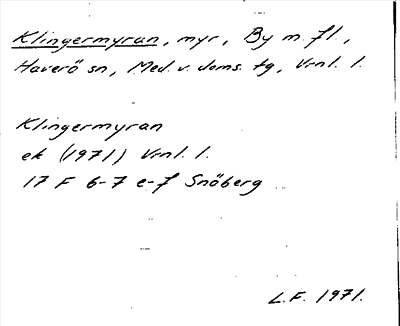 Klingermyran, myr, By m. fl.,
Haverö sn, Med. v. doms. tg, Vrnl. l.
Klingermyran
ek (1971) Vrnl. l.
17 F 6-7 e-f Snöberg
L.F. 1971.